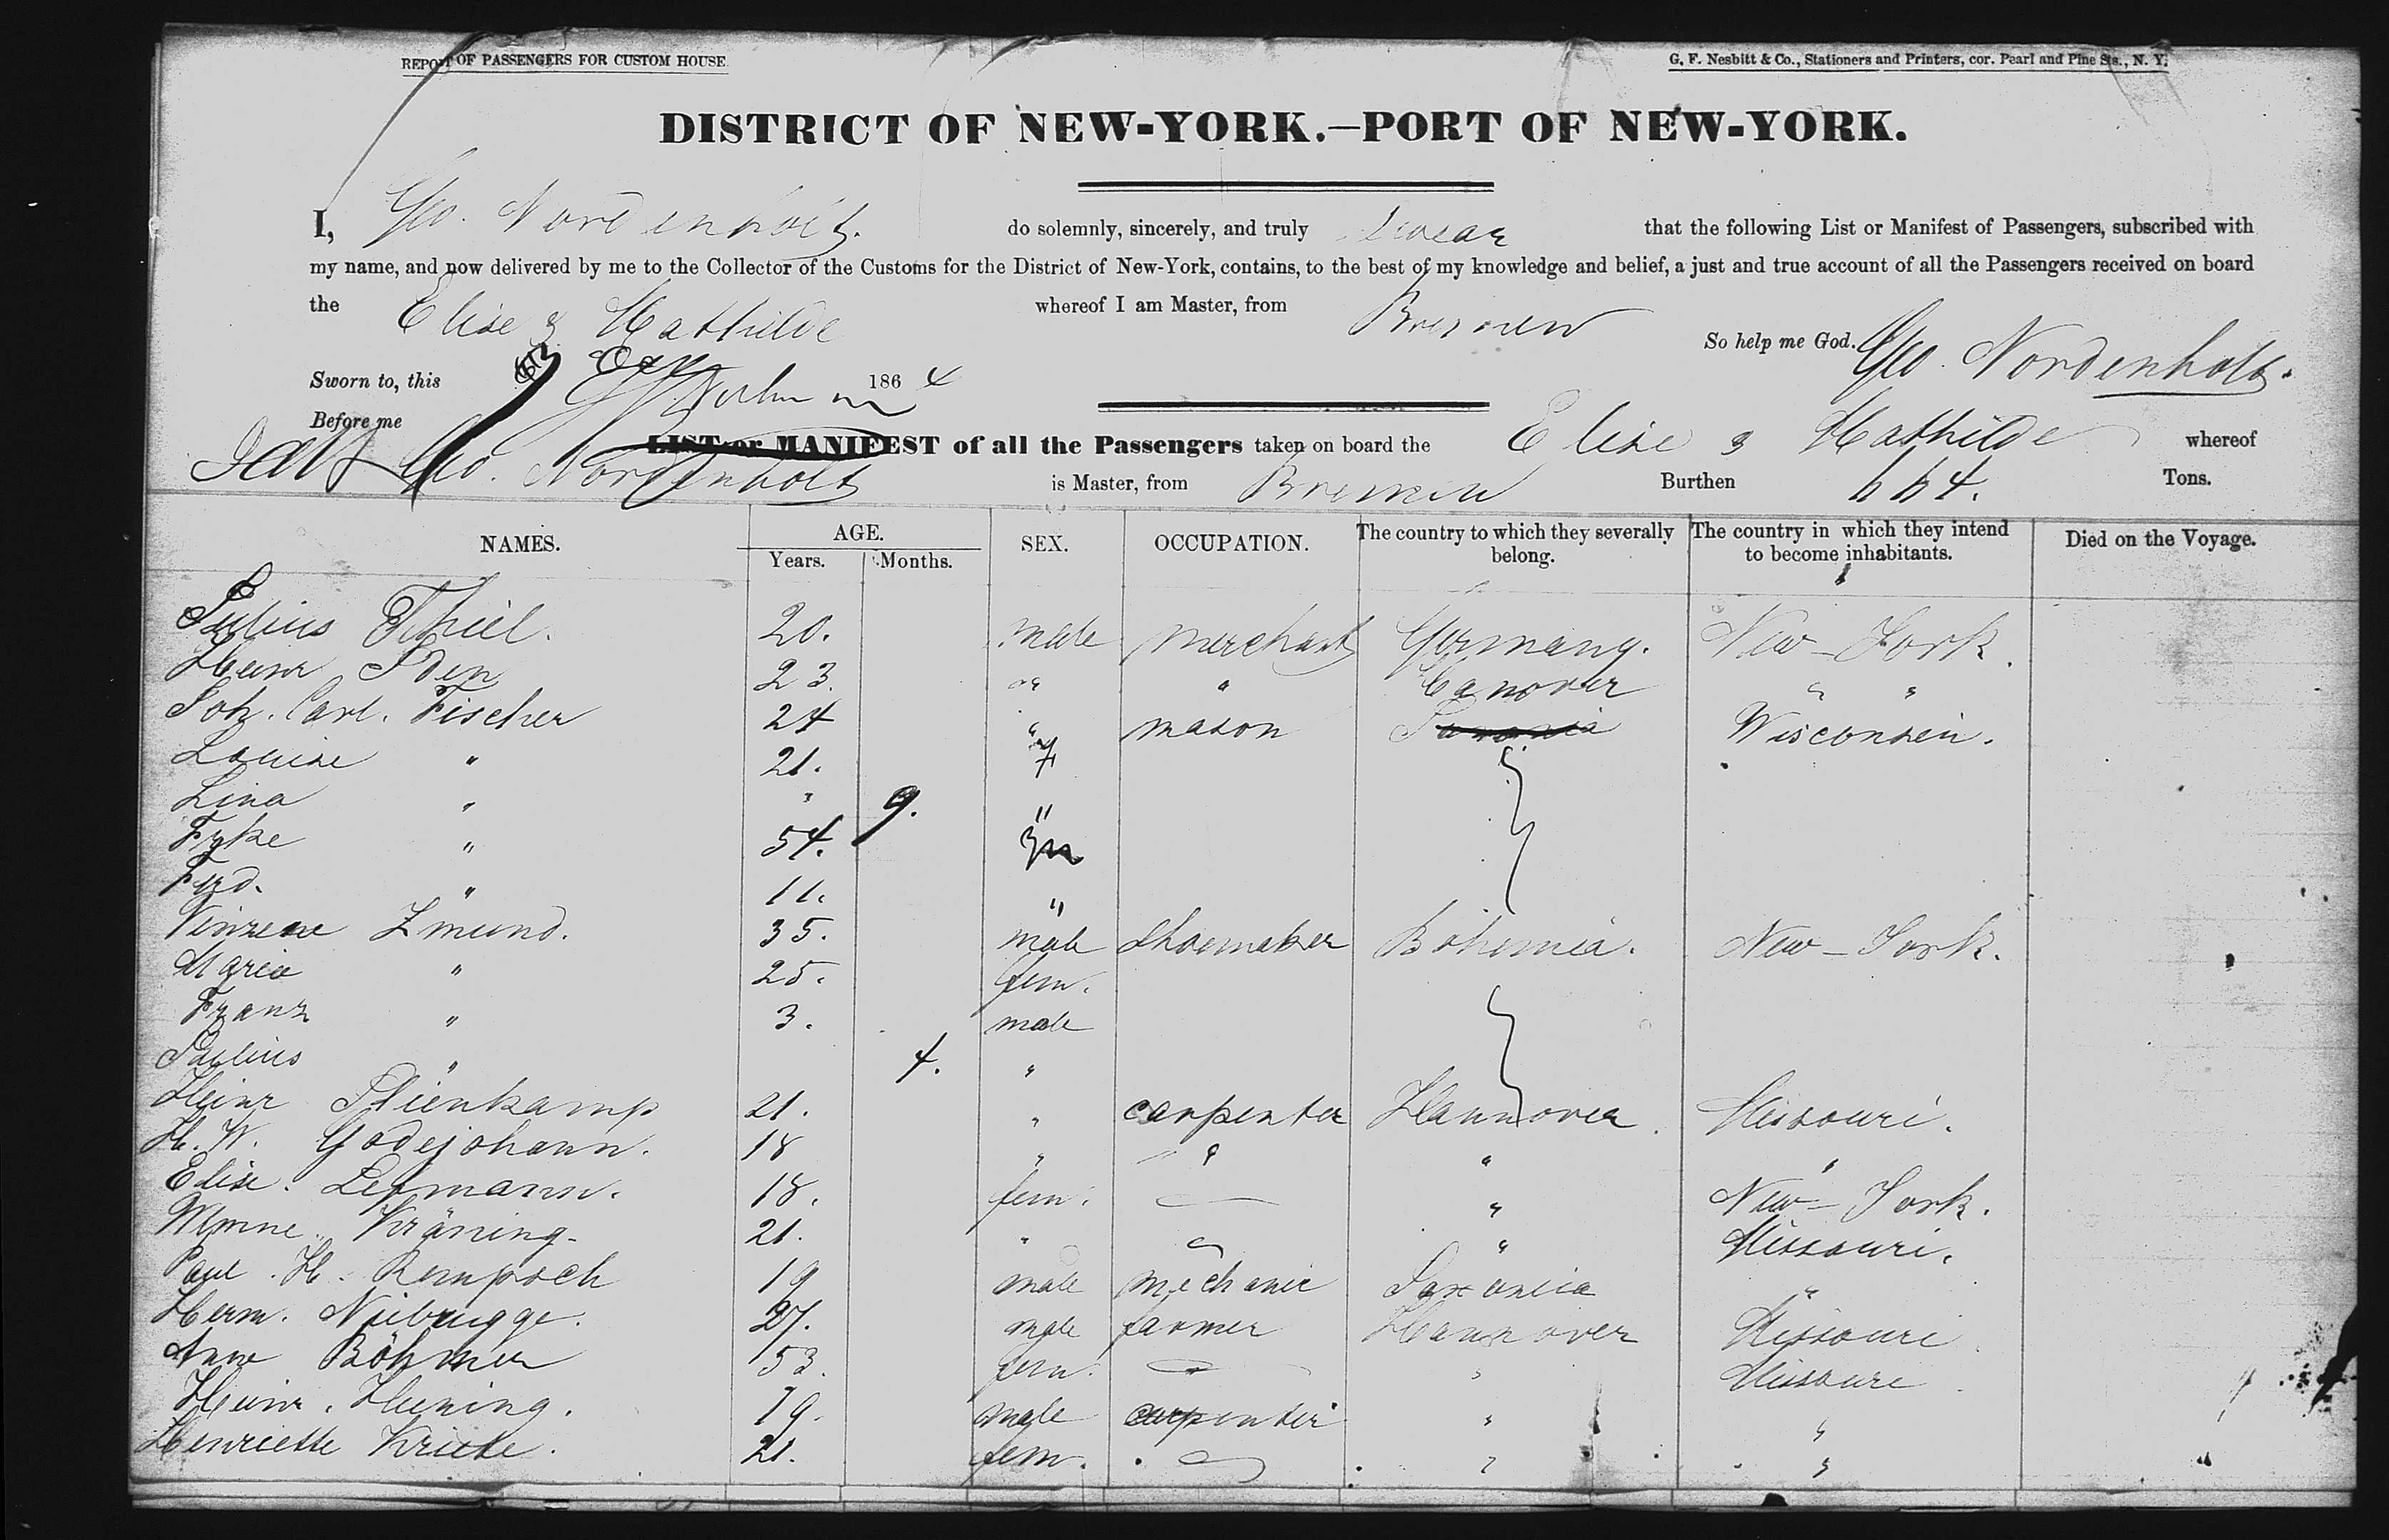 REPORT OF PASSENGERS FOR CUSTOM HOUSE
G. F. Nesbitt & Co., Stationers and Printers, cor. Pearl and Pine Sts., N. Y.
DISTRICT OF NEW-YORK.—PORT OF NEW-YORK.
I, Geo. Nordenholt. do solemnly, sincerely, and truly swear that the following List or Manifest of Passengers, subscribed with
my name, and now delivered by me to the Collector of the Customs for the District of New-York, contains, to the best of my knowledge and belief, a just and true account of all the Passengers received on board
the Elise & Mathilde whereof I am Master, from Bremen
So help me God. Geo. Nordenholt.
Sworn to, this 1864
Before me
LIST or MANIFEST of all the Passengers taken on board the Elise & Mathilde whereof
Geo. Nordenholt is Master, from Bremen Burthen 664. Tons.
NAMES. AGE. SEX. OCCUPATION. The country to which they severally belong. The country in which they intend to become inhabitants. Died on the Voyage.
Years. Months.
Julius Thiel. 20. male merchant Germany. New-York.
Heinr Iden 23. " " Hanover " "
Joh. Carl. Fischer 24 " mason Saxonia Wisconsin.
Louise " 21. f
Lina " " 9. "
" 54. m
Frd. " 11. "
Zmund. 35. male Shoemaker Bohemia. New-York.
Maria " 25. fem.
Franz " 3. male
" 4. "
Heinr Stienkamp 21. " carpenter Hannover. Missouri.
H. W. Godejohann. 18 " " " "
Elise. 18. fem. — " New-York.
Kröning. 21. " — " Missouri.
Paul. H. Rempoch 19 male mechanic Saxonia "
Herm. Niebrugge. 27. male farmer Hannover Missouri
Anne Böhmer 53. fem. — " Missouri
Heinr. Huning. 19. male carpenter " "
Henriette Kriete. 21. fem. — " "